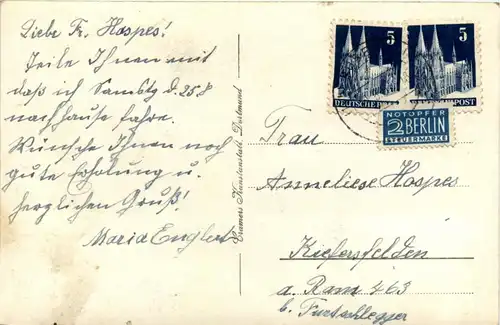 Liebe Fr. Hospes!
Teile Ihnen mit
daß ich Samstg d. 25.
nachhause fahre.
Wünsche Ihnen noch
gute Erholung u.
herzlichen Gruß!
Maria Englert
Cramers Kunstanstalt, Dortmund
5
5
DEUTSCHE POST
NOTOPFER
2 BERLIN
STEUERMARKE
Frau
Anneliese Hospes
Kiefersfelden
a. Ram 463
b.